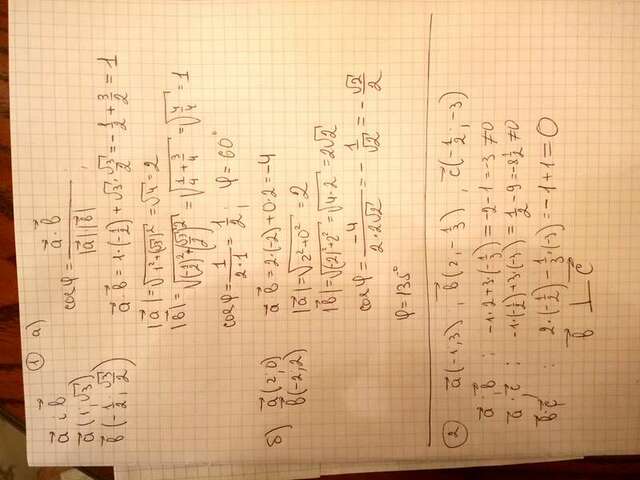 ① а)
a⃗ и b⃗
a⃗ (1; √3)
b⃗ (-1/2; √3/2)
cosφ = a⃗·b⃗ / |a⃗|·|b⃗|
a⃗ b⃗ = 1·(-1/2) + √3·√3/2 = -1/2 + 3/2 = 1
|a⃗| = √(1² + (√3)²) = √4 = 2
|b⃗| = √((-1/2)² + (√3/2)²) = √(1/4 + 3/4) = √(4/4) = 1
cosφ = 1/(2·1) = 1/2, φ = 60°
б) a⃗ (2; 0)
b⃗ (-2; 2)
a⃗ b⃗ = 2·(-2) + 0·2 = -4
|a⃗| = √(2² + 0²) = 2
|b⃗| = √((-2)² + 2²) = √(4·2) = 2√2
cosφ = -4/(2·2√2) = -1/√2 = -√2/2
φ = 135°
② a⃗ (-1; 3), b⃗ (2; -1/3), c⃗ (-1/2; -3)
a⃗·b⃗ : -1·2 + 3·(-1/3) = -2 - 1 = -3 ≠ 0
a⃗·c⃗ : -1·(-1/2) + 3·(-3) = 1/2 - 9 = -8 1/2 ≠ 0
b⃗·c⃗ : 2·(-1/2) - 1/3·(-3) = -1 + 1 = 0
b⃗ ⊥ c⃗